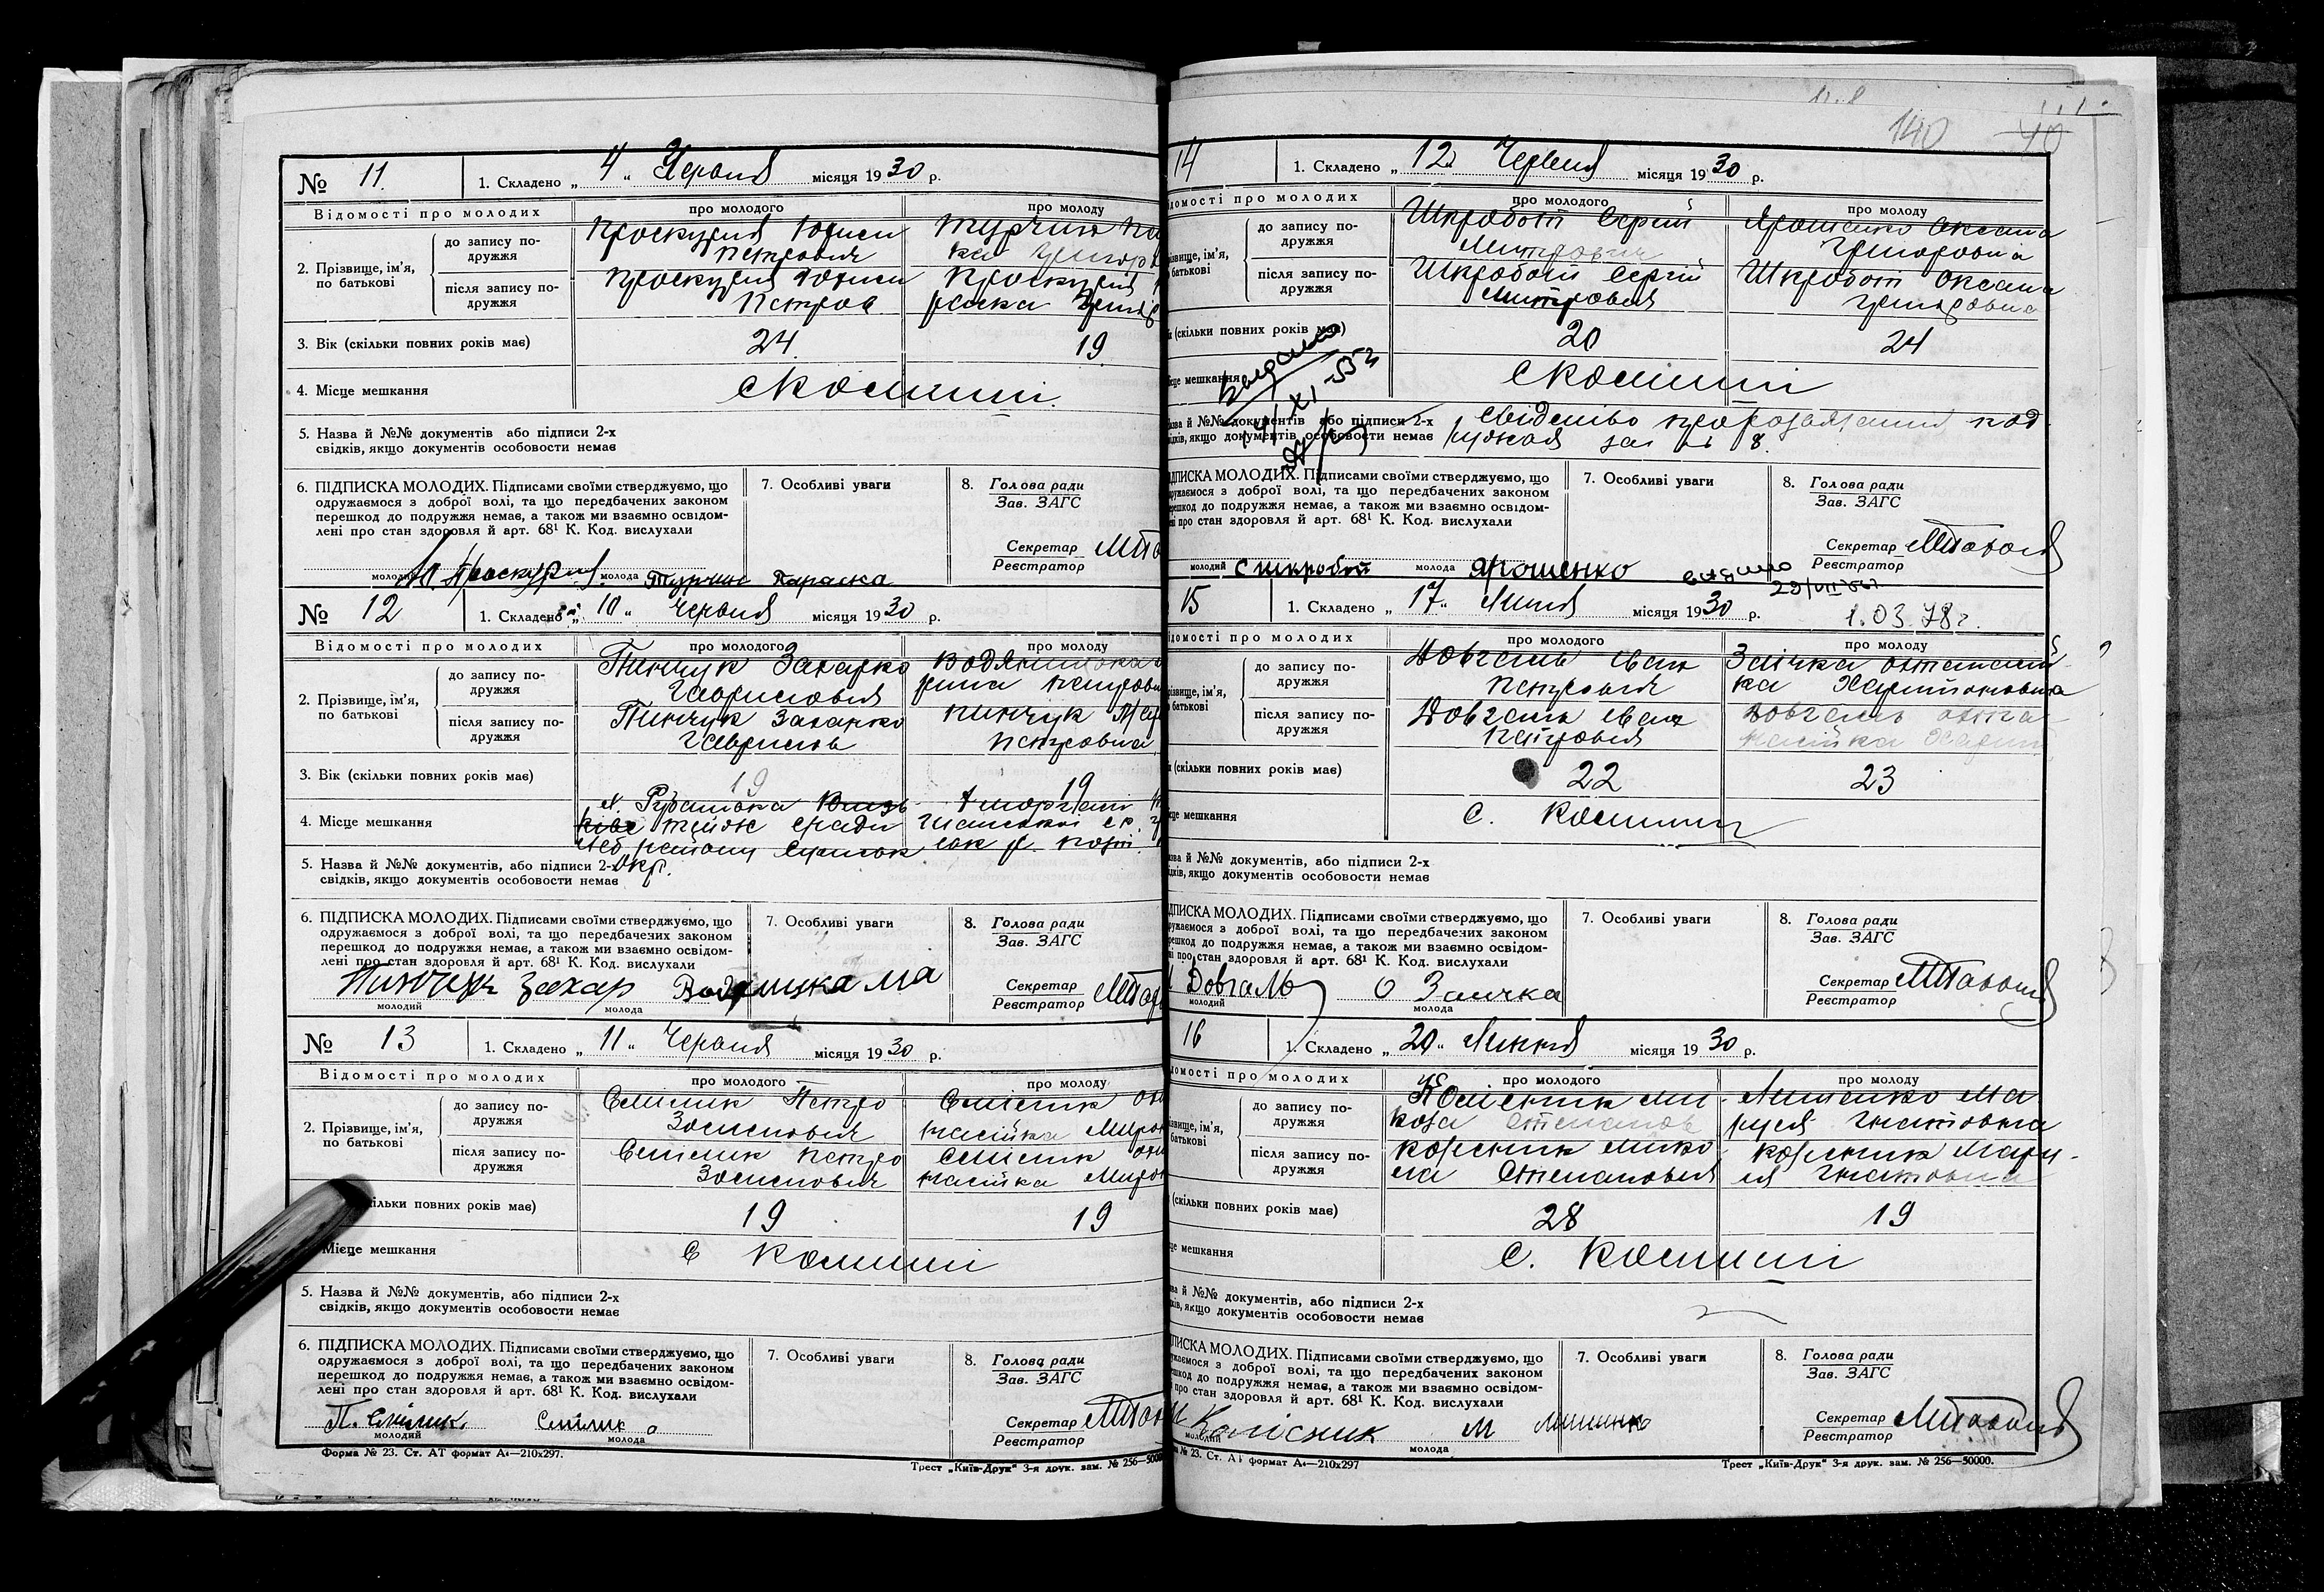 № 11. 1. Складено „ 4 " Червня місяця 1930 р.
Відомості про молодих про молодого про молоду
2. Прізвище, ім'я, по батькові
до запису подружжя
Проскурня Юхим
Петрович
Турчин
після запису подружжя
Проскурня Юхим
Петров
Проскурня
раска
3. Вік (скільки повних років має) 24. 19
4. Місце мешкання
5. Назва й №№ документів або підписи 2-х
свідків, якщо документів особовости немає
6. ПІДПИСКА МОЛОДИХ. Підписами своїми стверджуємо, що
одружаємося з доброї волі, та що передбачених законом
перешкод до подружжя немає, а також ми взаємно освідом-
лені про стан здоровля й арт. 68¹ К. Код. вислухали
7. Особливі уваги
8. Голова ради
Зав. ЗАГС
Секретар
Реєстратор
молодий Проскурня молода Турчин Параска
№ 12 1. Складено „ 10 " Червня місяця 1930 р.
Відомості про молодих про молодого про молоду
2. Прізвище, ім'я, по батькові
до запису подружжя
Пинчук Захарко
Гаврилович
рина Петровн
після запису подружжя
Пинчук Захарко
Гаврилов
Пинчук Мар
Петровна
3. Вік (скільки повних років має) 19 19
4. Місце мешкання
окр.
5. Назва й №№ документів, або підписи 2-х
свідків, якщо документів особовости немає
6. ПІДПИСКА МОЛОДИХ. Підписами своїми стверджуємо, що
одружаємося з доброї волі, та що передбачених законом
перешкод до подружжя немає, а також ми взаємно освідом-
лені про стан здоровля й арт. 68¹ К. Код. вислухали
7. Особливі уваги
8. Голова ради
Зав. ЗАГС
Секретар
Реєстратор
Пинчук Захар
молодий молода
№ 13 1. Складено „ 11 " Червня місяця 1930 р.
Відомості про молодих про молодого про молоду
2. Прізвище, ім'я, по батькові
до запису подружжя
Смілик Петро
Зосимович
Смілик
насійка Мирон
після запису подружжя
Смілик Петро
Зосимович
Смілик
насійка Мирон
скільки повних років має) 19 19
Місце мешкання с
5. Назва й №№ документів, або підписи 2-х
свідків, якщо документів особовости немає
6. ПІДПИСКА МОЛОДИХ. Підписами своїми стверджуємо, що
одружаємося з доброї волі, та що передбачених законом
перешкод до подружжя немає, а також ми взаємно освідом-
лені про стан здоровля й арт. 68¹ К. Код. вислухали
7. Особливі уваги
8. Голова ради
Зав. ЗАГС
Секретар
Реєстратор
П. Смілик. Смілик о
молодий молода
Форма № 23. Ст. АТ формат А₄—210х297.
Трест „Київ-Друк" 3-я друк. зам. № 256—5000
140 40
14 1. Складено „ 12 Червня місяця 1930 р.
про молодих про молодого про молоду
до запису подружжя
Шкробот Сергій
Митрович
Ярошенко Оксана
Григоровна
після запису подружжя
Шкробот Сергій
Митрович
Шкробот Оксана
Григоровна
(скільки повних років має) 20 24
мешкання
Видано
документів або підписи 2-х
якщо документів особовости немає
за № 8.
ПІДПИСКА МОЛОДИХ. Підписами своїми стверджуємо, що
одружаємося з доброї волі, та що передбачених законом
перешкод до подружжя немає, а також ми взаємно освідом-
лені про стан здоровля й арт. 68¹ К. Код. вислухали
7. Особливі уваги
8. Голова ради
Зав. ЗАГС
Секретар
Реєстратор
молодий С шкробот молода Ярошенко
видано
15 1. Складено „ 17 " Липня місяця 1930 р.
1.03.78г.
про молодих про молодого про молоду
до запису подружжя
Довгаль Іван
Петрович
Заїчка Охтанасій
ка Харитоновна
після запису подружжя
Довгаль Іван
Петрович
Довгаль Охта
насійка Харит
(скільки повних років має) 22 23
мешкання с.
№№ документів, або підписи 2-х
якщо документів особовости немає
ПІДПИСКА МОЛОДИХ. Підписами своїми стверджуємо, що
одружаємося з доброї волі, та що передбачених законом
перешкод до подружжя немає, а також ми взаємно освідом-
лені про стан здоровля й арт. 68¹ К. Код. вислухали
7. Особливі уваги
8. Голова ради
Зав. ЗАГС
Секретар
Реєстратор
Довгаль О Заичка
молодий молода
16 1. Складено „ 20 " Липня місяця 1930 р.
про молодих про молодого про молоду
до запису подружжя
Колісник Ми
кола Степанов
Ма
руся Гнатовна
після запису подружжя
Колісник Мико
ла Степанович
Колісник Мару-
ся Гнатовна
(скільки повних років має) 28 19
мешкання с.
№№ документів, або підписи 2-х
якщо документів особовости немає
ПІДПИСКА МОЛОДИХ. Підписами своїми стверджуємо, що
одружаємося з доброї волі, та що передбачених законом
перешкод до подружжя немає, а також ми взаємно освідом-
про стан здоровля й арт. 68¹ К. Код. вислухали
7. Особливі уваги
8. Голова ради
Зав. ЗАГС
Секретар
Реєстратор
Колісник М
молодий молода
№ 23. Ст. АТ формат А₄—210х297
Трест „Київ-Друк" 3-я друк. зам. № 256—50000.